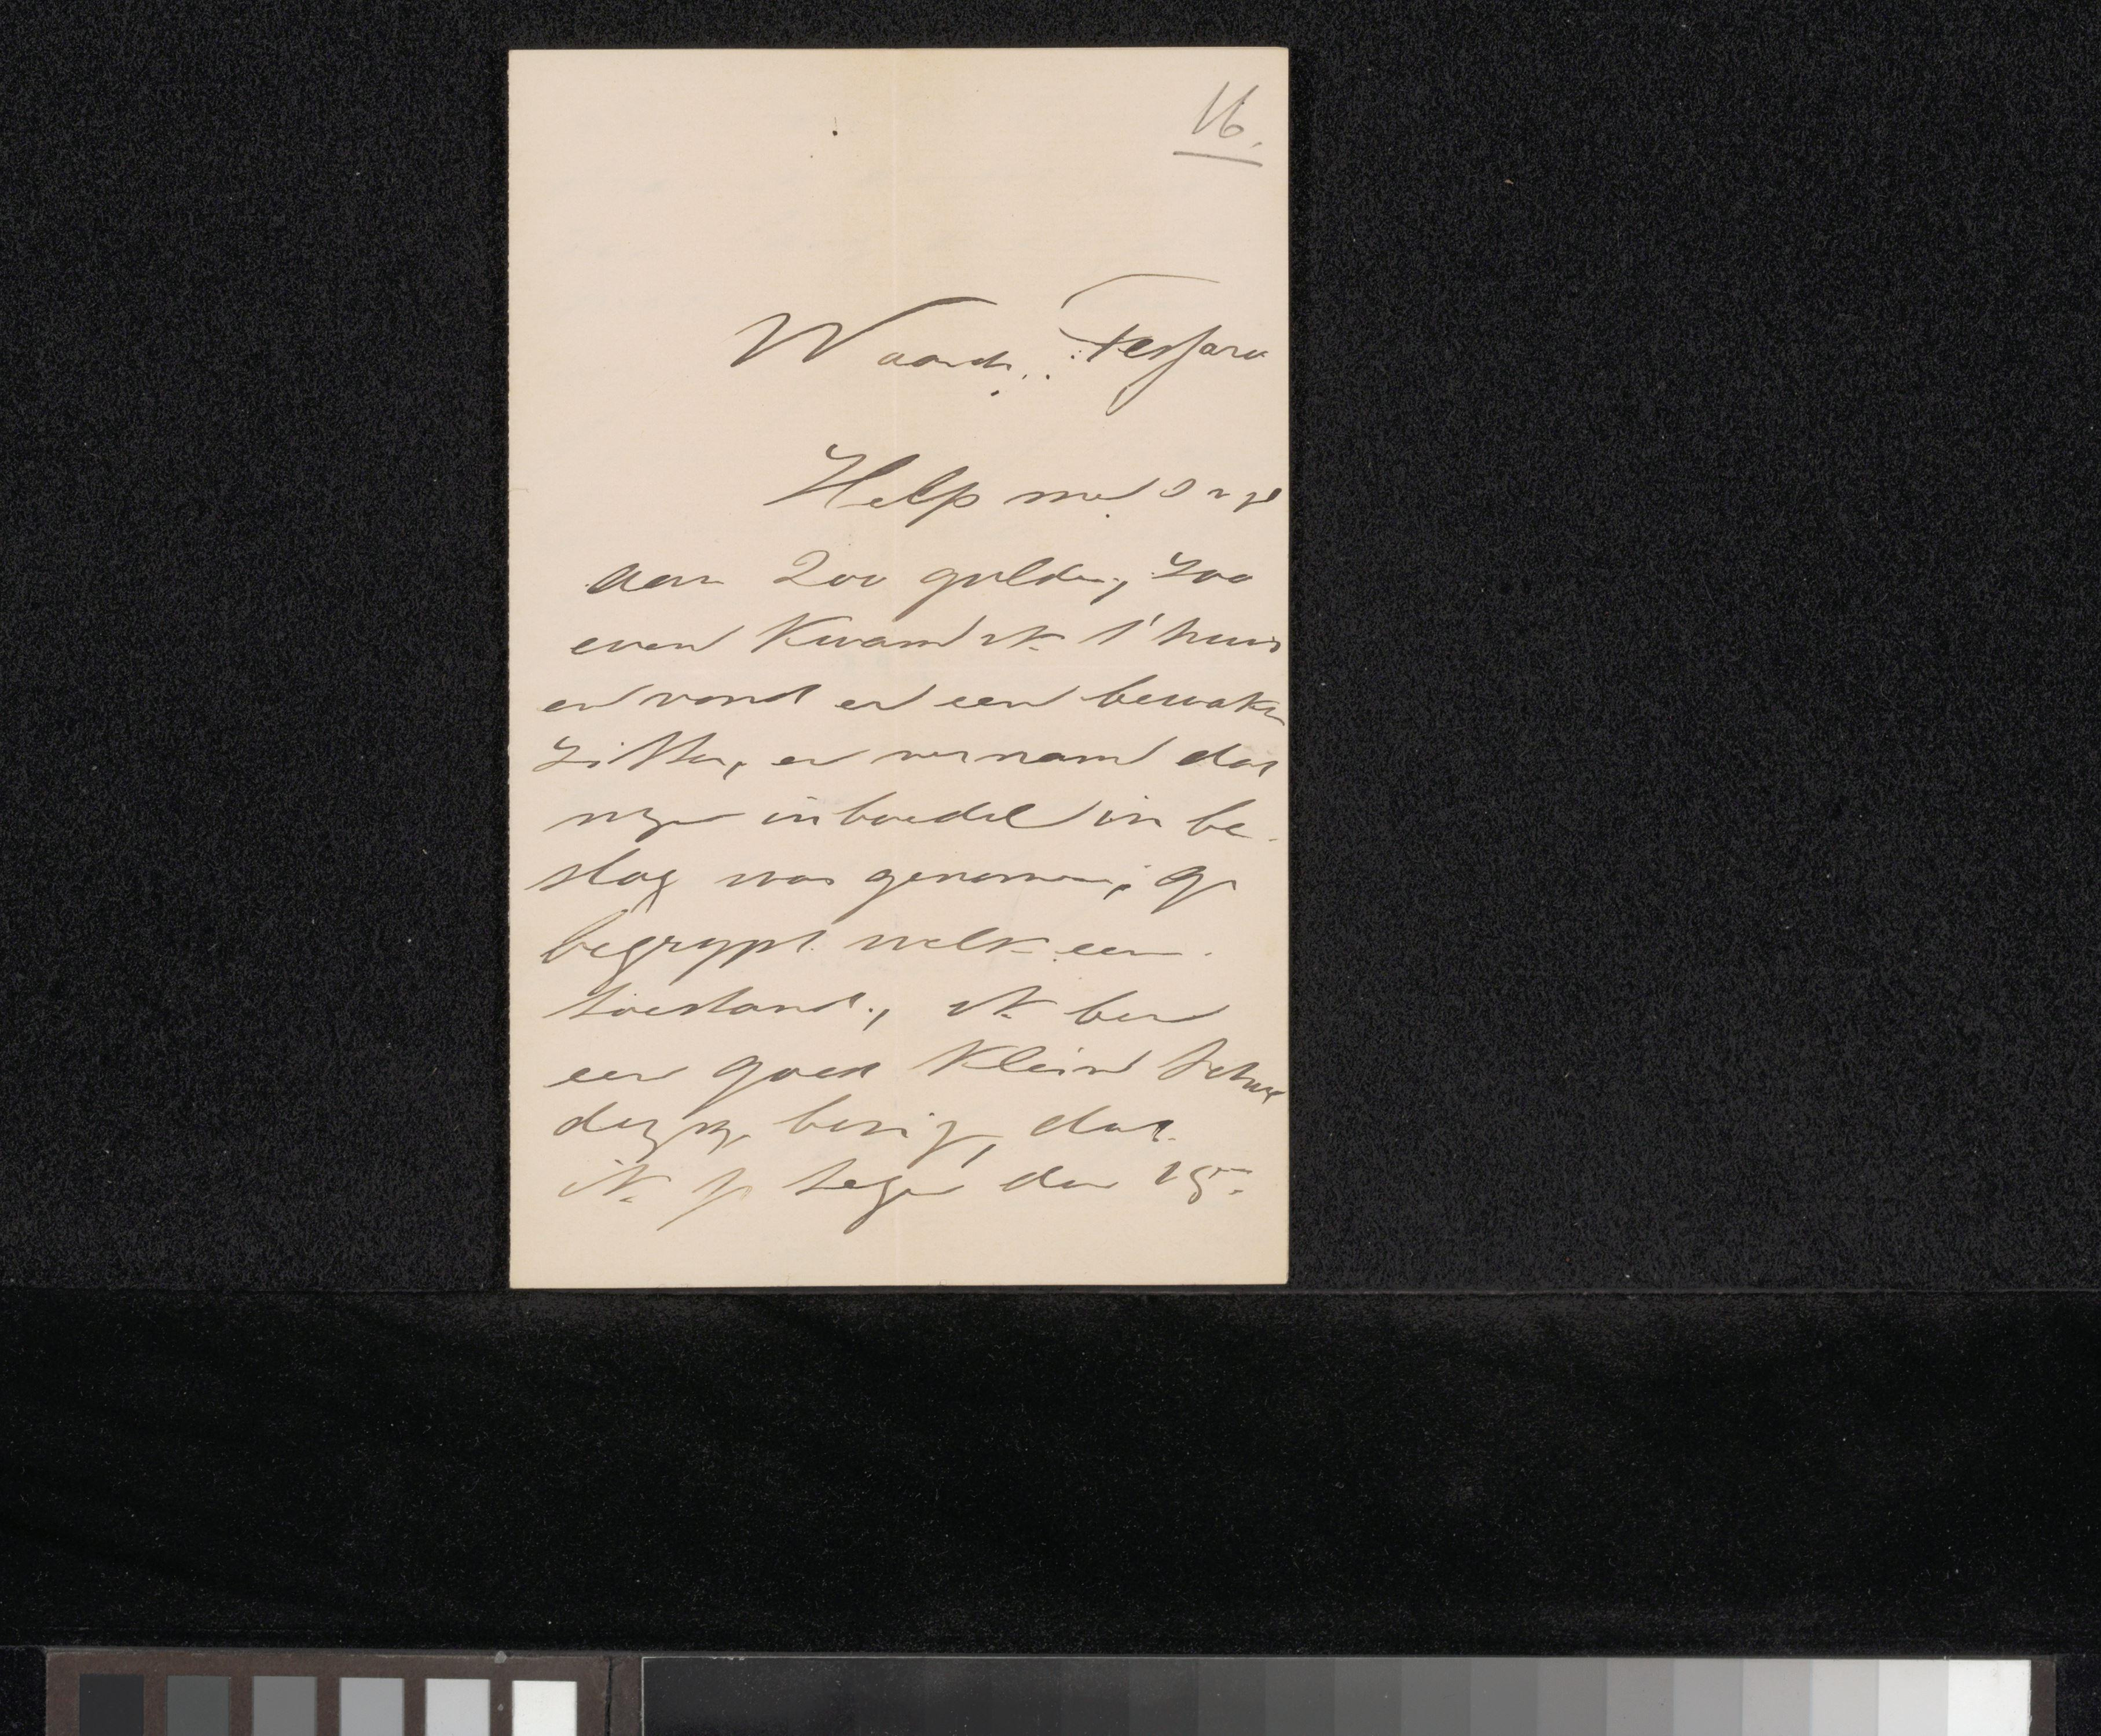 16.
Waarde Tessaro
Help me
aan 200 gulden, zoo
even kwam ik t'huis
en vond er een bewaker
zitten, en vernam dat
myn inboedel in be-
slag was genomen; gy
begrypt welk een
toestand, ik ben
een goed klein schil
dery bezig, dat
ik tegen den 15.